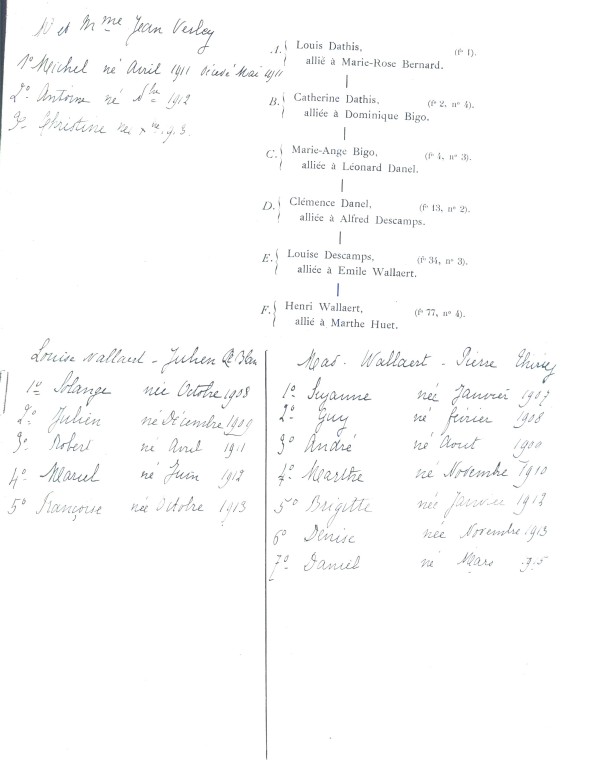 et Mme Jean Verley
1º Michel né Avril 1911 décédé Mai 1911
2º Antoine né 1912
3º Christine
A. { Louis Dathis, (fº 1).
allié à Marie-Rose Bernard.
B. { Catherine Dathis, (fº 2, nº 4).
alliée à Dominique Bigo.
C. { Marie-Ange Bigo, (fº 4, nº 3).
alliée à Léonard Danel.
D. { Clémence Danel, (fº 13, nº 2).
alliée à Alfred Descamps.
E. { Louise Descamps, (fº 34, nº 3).
alliée à Emile Wallaert.
F. { Henri Wallaert, (fº 77, nº 4).
allié à Marthe Huet.
Louise Wallaert - Julien Le Blan
1º Solange née Octobre 1908
2º Julien né Décembre 1909
3º Robert né Avril 1911
4º Marcel né Juin 1912
5º Françoise née Octobre 1913
Mad. Wallaert - Pierre Thiriez
1º Suzanne née Janvier 1907
2º Guy né février 1908
3º André né Aout 1909
4º Marthe né Novembre 1910
5º Brigitte née Janvier 1912
6º Denise née Novembre 1913
7º Daniel né Mars 915